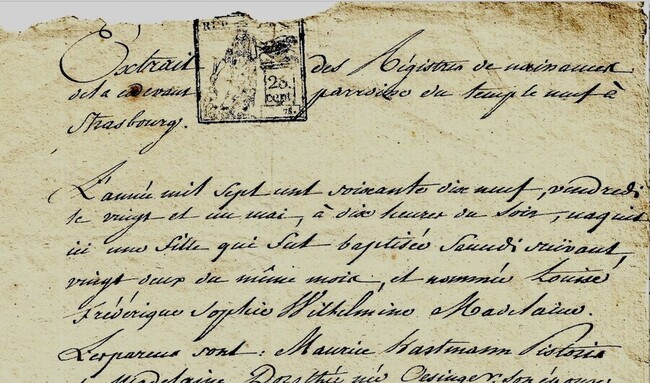 Extrait des Régistres de naissances
de la ci devant parroisse du temple neuf à
Strasbourg.
REP. FRA
25.
cent.
75.
L'année mil sept cent soixante dix neuf, vendredi
le vingt et un mai, à dix heures du Soir, naquit
ici une fille qui fut baptisée Samdi suivant,
vingt deux du même mois, et nommée Louise
Fréderique Sophie Wilhelmine Madelaine.
Les pareus sont : Maurice Hartmann Pistoris
Madelaine Dorothée née Oesinger son épouse